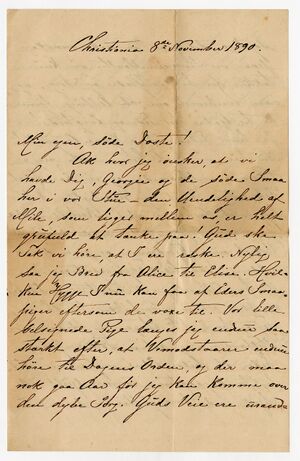 Christiania 8de November 1890.
Min egen, söde Doste!
Ak hvor jeg önsker, at vi
havde Dig, Georgie og de söde Smaa
her i vor Stue – den Uendelighed af
Mile, som ligger mellem os, er helt
at tænke paa! Gud ske
Tak vi höre at I ere raske. Nylig
saa jeg Brev fra Alice til Elise. Hvil-
ken I nu kan faa af Eders Smaa-
piger eftersom de voxe til. Vor lille
velsignede Pige længes jeg endnu saa
stærkt efter, at Vemodstaarer endnu
höre til Dagens Orden, og der maa
nok gaa Aar för jeg kan komme over
den dybe Sorg. Guds Veie ere